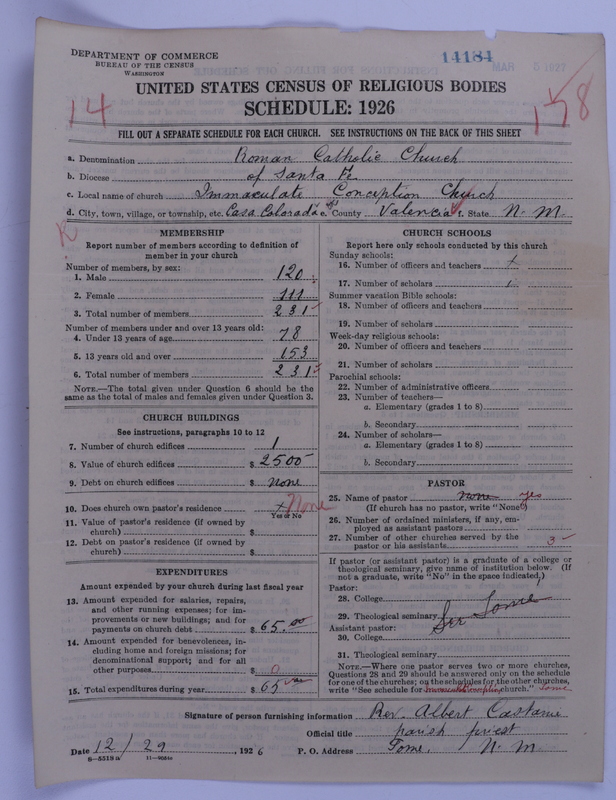 DEPARTMENT OF COMMERCE
BUREAU OF THE CENSUS
WASHINGTON
14184
MAR 5 1927
UNITED STATES CENSUS OF RELIGIOUS BODIES
SCHEDULE: 1926
14
158
FILL OUT A SEPARATE SCHEDULE FOR EACH CHURCH. SEE INSTRUCTIONS ON THE BACK OF THIS SHEET
a. Denomination Roman Catholic Church
b. Diocese of Santa Fe
c. Local name of church Immaculate Conception Church
d. City, town, village, or township, etc. Casa Colorada e. County Valencia f. State N. M.
MEMBERSHIP
Report number of members according to definition of
member in your church
Number of members, by sex:
1. Male 120
2. Female 111
3. Total number of members 231
Number of members under and over 13 years old:
4. Under 13 years of age 78
5. 13 years old and over 153
6. Total number of members 231
NOTE.—The total given under Question 6 should be the
same as the total of males and females given under Question 3.
CHURCH BUILDINGS
See instructions, paragraphs 10 to 12
7. Number of church edifices 1
8. Value of church edifices $ 2500
9. Debt on church edifices $ None
10. Does church own pastor's residence None
Yes or No
11. Value of pastor's residence (if owned by
church) $
12. Debt on pastor's residence (if owned by
church) $
EXPENDITURES
Amount expended by your church during last fiscal year
13. Amount expended for salaries, repairs,
and other running expenses; for im-
provements or new buildings; and for
payments on church debt $ 65.00
14. Amount expended for benevolences, in-
cluding home and foreign missions; for
denominational support; and for all
other purposes $ 0
15. Total expenditures during year $ 65
CHURCH SCHOOLS
Report here only schools conducted by this church
Sunday schools:
16. Number of officers and teachers
17. Number of scholars
Summer vacation Bible schools:
18. Number of officers and teachers
19. Number of scholars
Week-day religious schools:
20. Number of officers and teachers
21. Number of scholars
Parochial schools:
22. Number of administrative officers
23. Number of teachers—
a. Elementary (grades 1 to 8)
b. Secondary
24. Number of scholars—
a. Elementary (grades 1 to 8)
b. Secondary
PASTOR
25. Name of pastor none yes
(If church has no pastor, write "None")
26. Number of ordained ministers, if any, em-
ployed as assistant pastors
27. Number of other churches served by the
pastor or his assistants 3
If pastor (or assistant pastor) is a graduate of a college or
theological seminary, give name of institution below. (If
not a graduate, write "No" in the space indicated.)
Pastor:
28. College
29. Theological seminary Tome
Assistant pastor:
30. College
31. Theological seminary
NOTE.—Where one pastor serves two or more churches,
Questions 28 and 29 should be answered only on the schedule
for one of the churches; on the schedules for the other churches,
write "See schedule for Immaculate Conception church." Tome
Signature of person furnishing information Rev. Albert Castanie
Official title parish priest
Date 12/29, 1926 P. O. Address Tome, N. M.
8—5518a 11—9051a